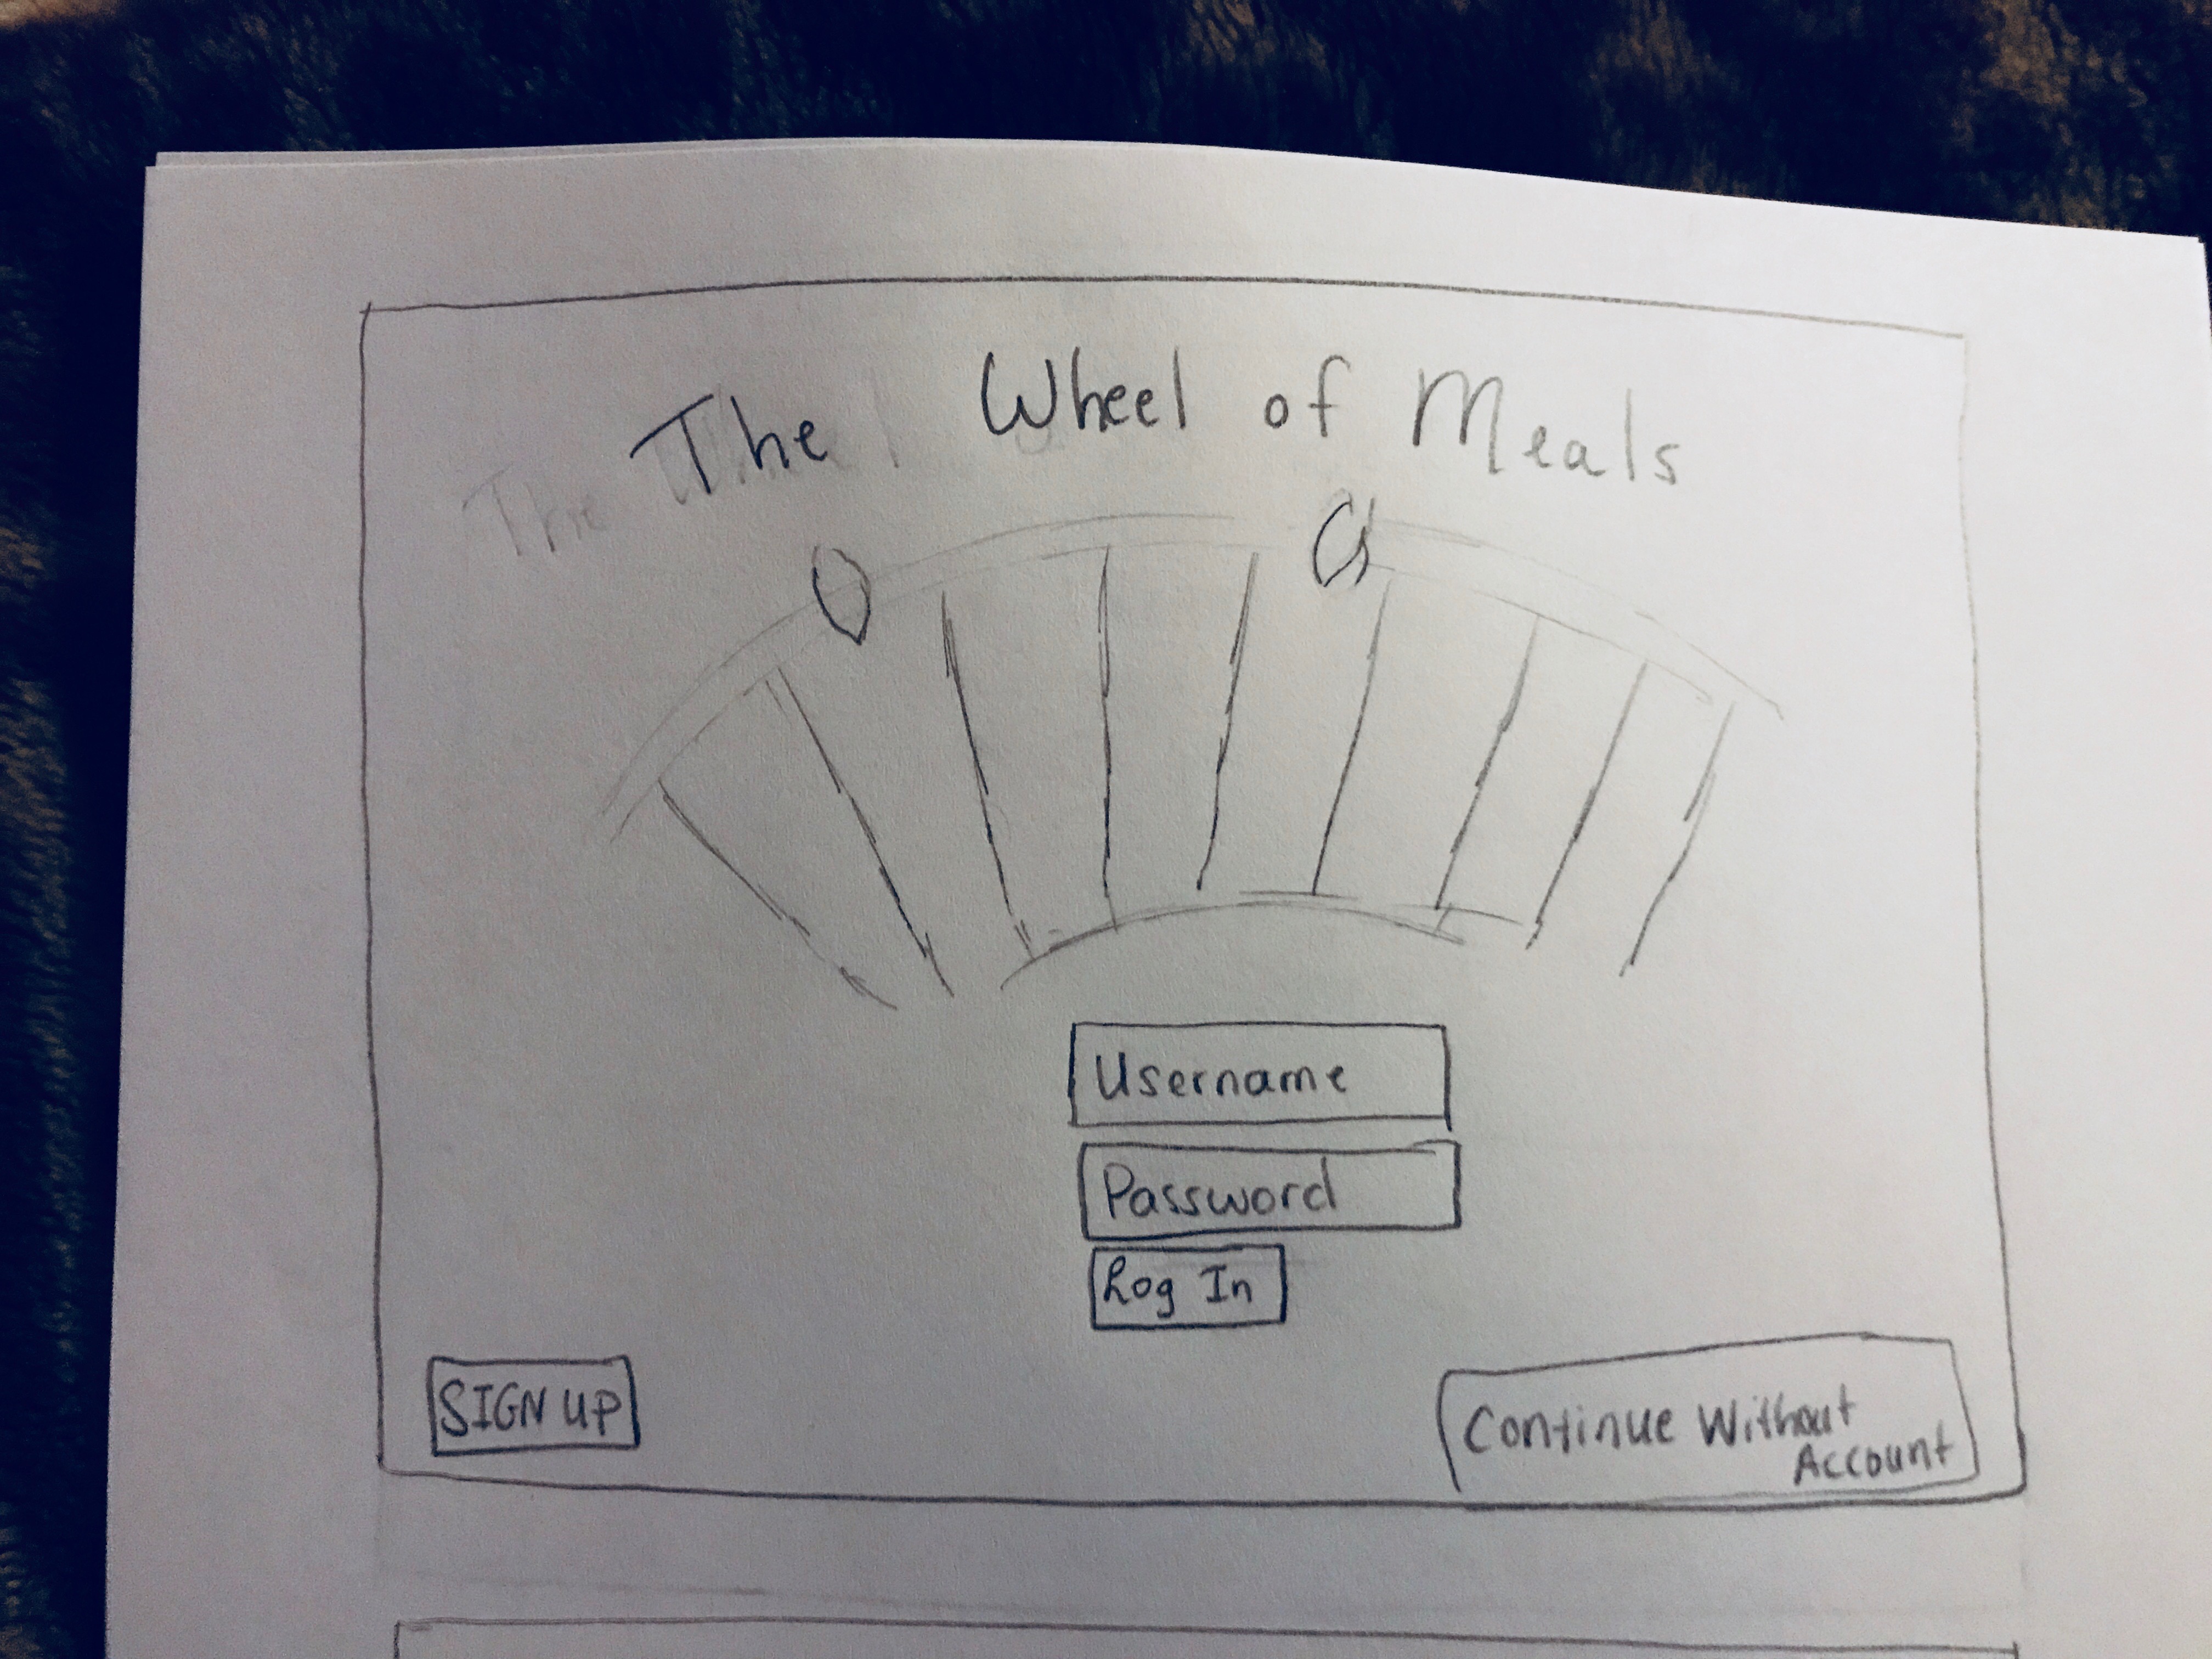 The Wheel of Meals
Username
Password
Log In
SIGN UP
Continue Without
Account